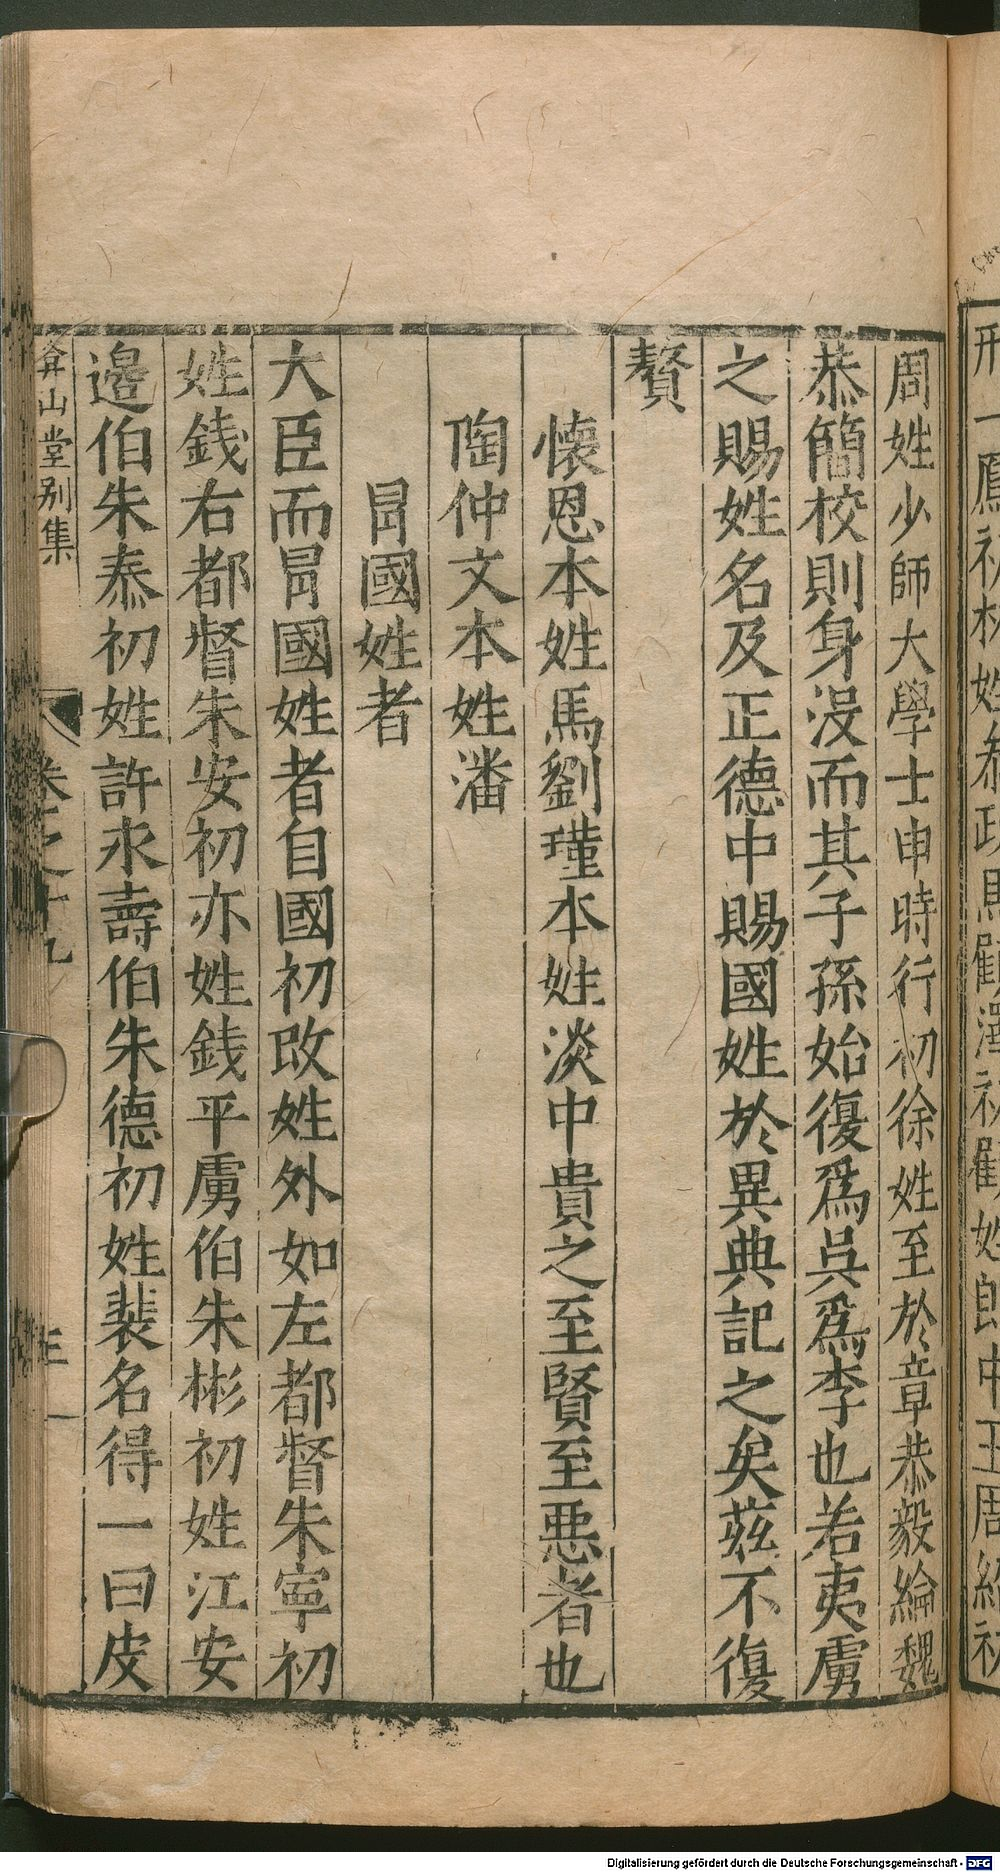 周姓少師大學士申時行初徐姓至於章恭毅綸魏
恭簡校則身沒而其子孫始復爲吳爲李也若夷虜
之賜姓名及正德中賜國姓於異典記之矣茲不復
贅
懷恩本姓馬劉瑾本姓淡中貴之至賢至惡者也
陶仲文本姓潘
冒國姓者
大臣而冒國姓者自國初改姓外如左都督朱寧初
姓錢右都督朱安初亦姓錢平虜伯朱彬初姓江安
邉伯朱泰初姓許永壽伯朱德初姓裴名得一曰皮
弇山堂別集
卷之十九
三
Digitalisierung gefördert durch die Deutsche Forschungsgemeinschaft - DFG